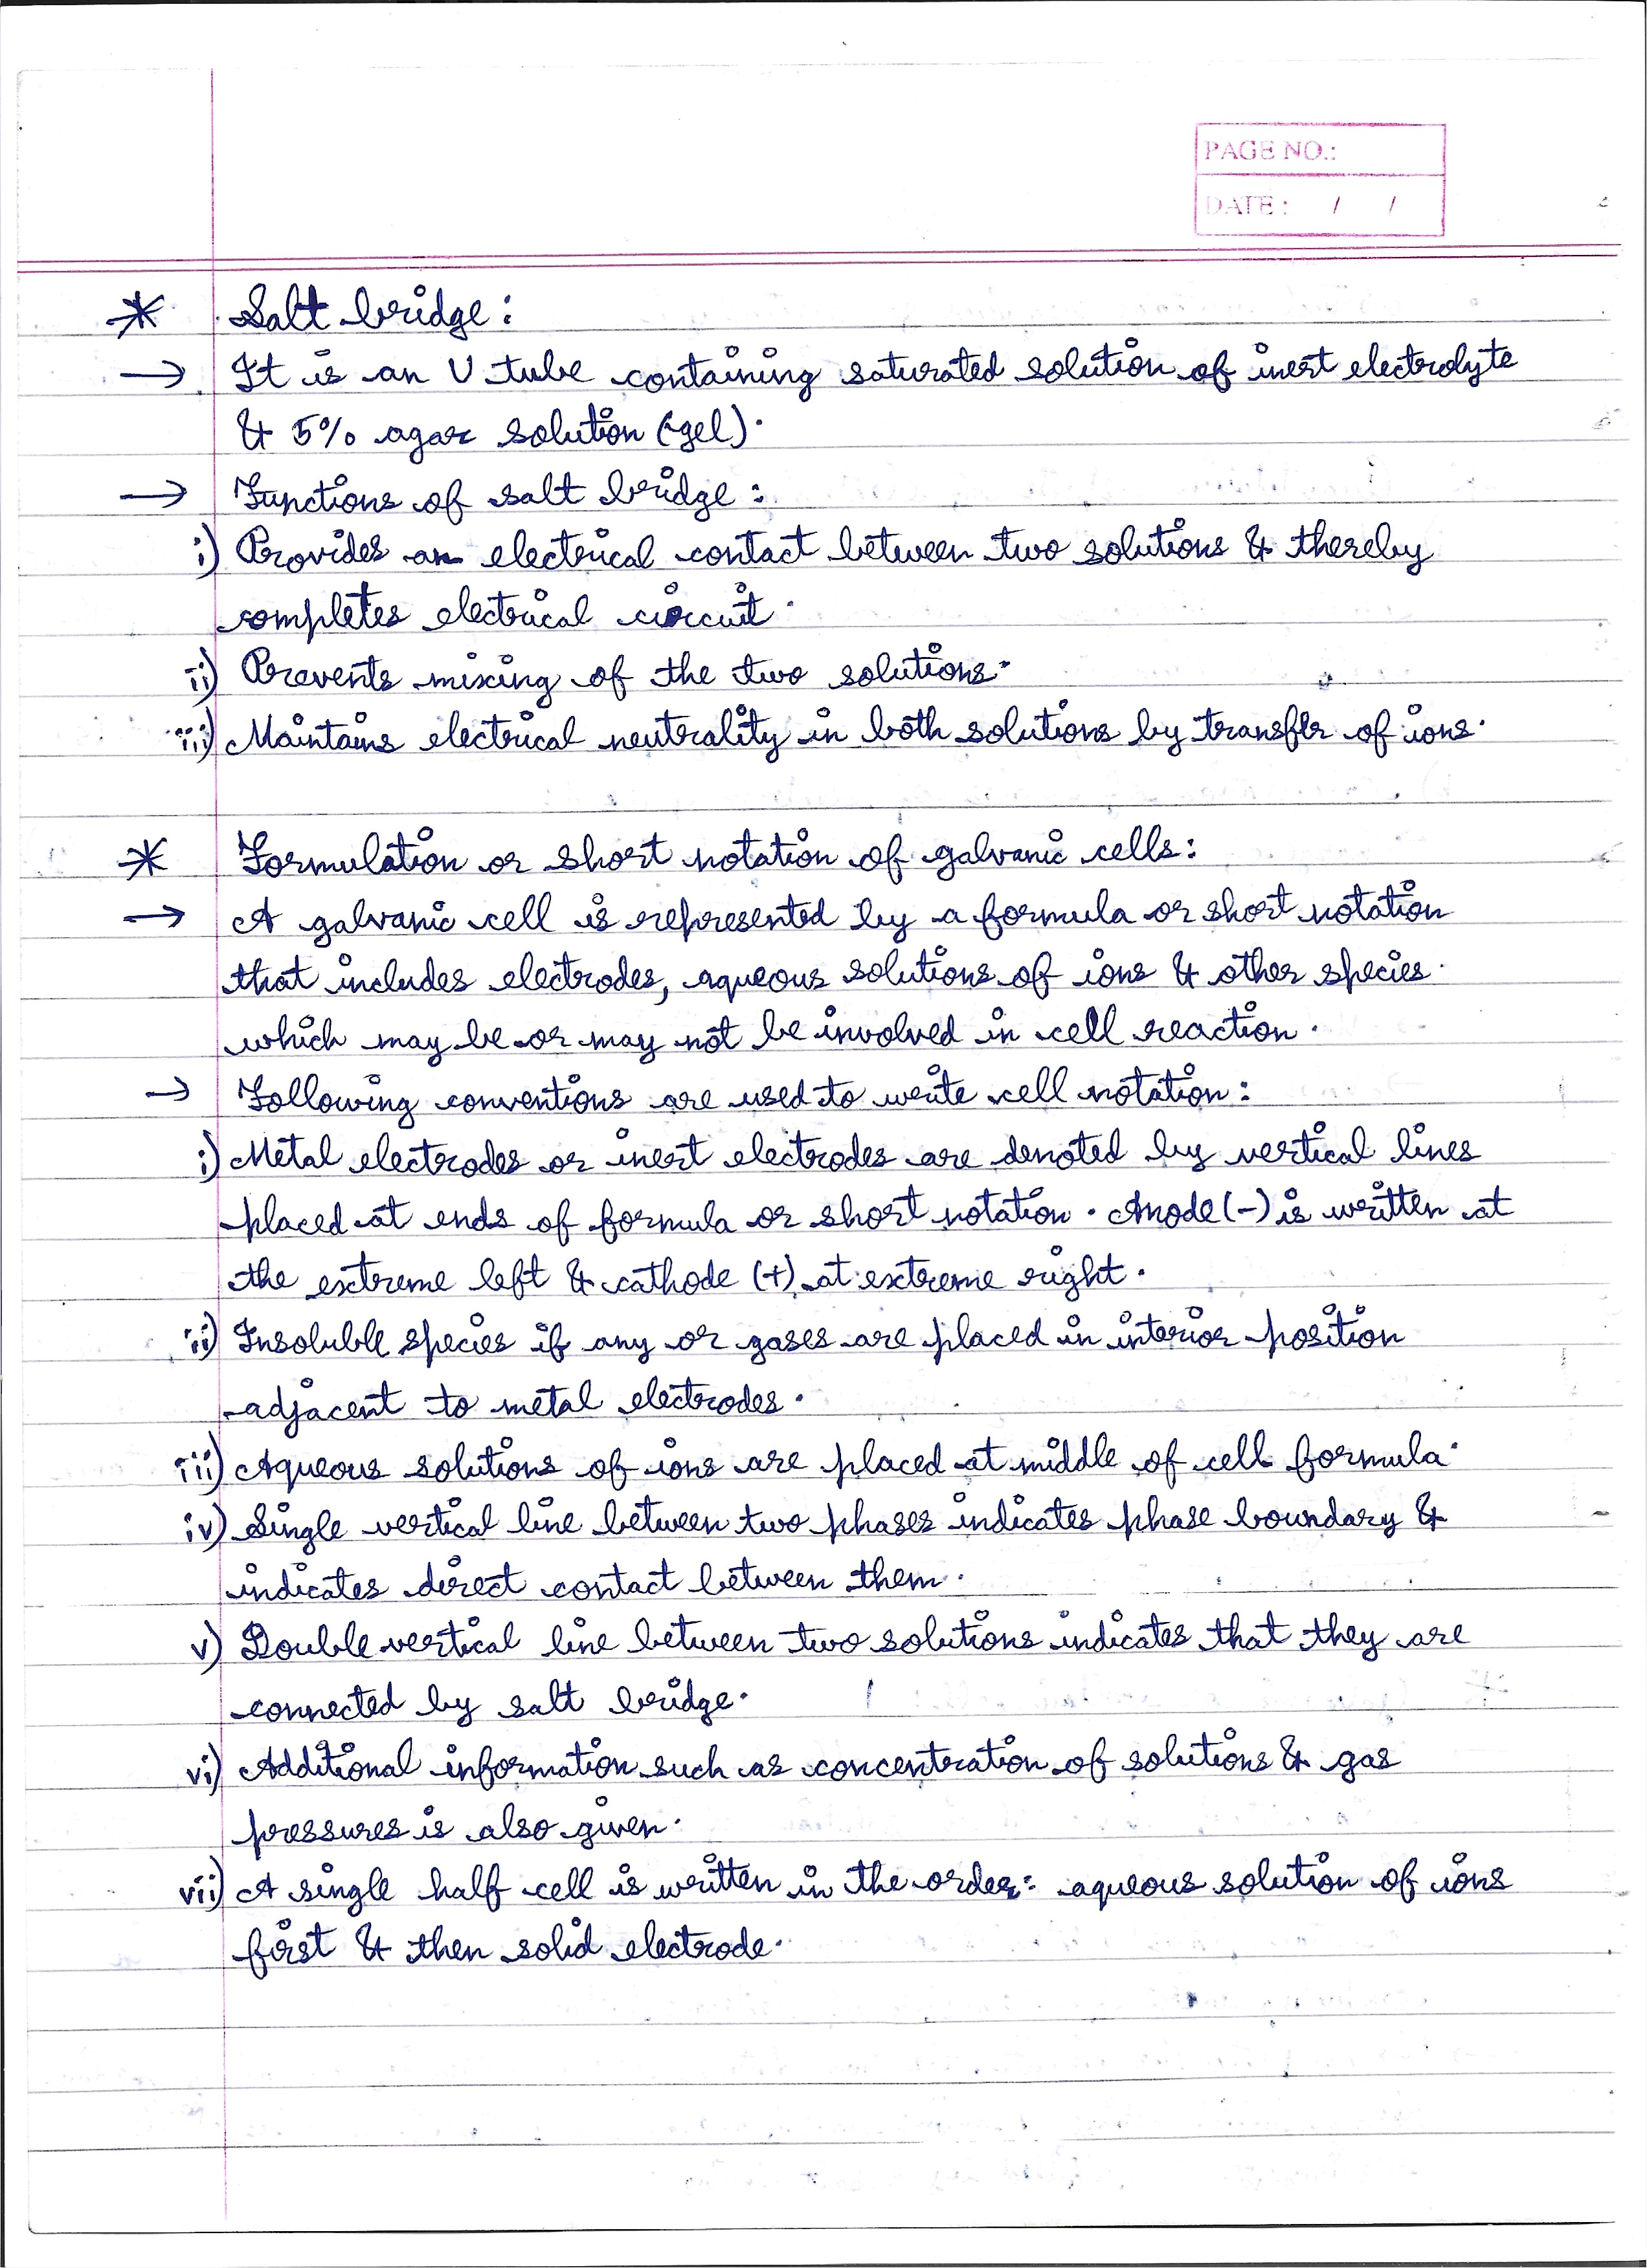 PAGE NO.:
DATE : / /
* Salt bridge :
→ It is an U tube containing saturated solution of inert electrolyte
& 5% agar solution (gel).
→ Functions of salt bridge :
i) Provides an electrical contact between two solutions & thereby
completes electrical circuit.
ii) Prevents mixing of the two solutions.
iii) Maintains electrical neutrality in both solutions by transfer of ions.
* Formulation or short notation of galvanic cells :
→ A galvanic cell is represented by a formula or short notation
that includes electrodes, aqueous solutions of ions & other species
which may be or may not be involved in cell reaction.
→ Following conventions are used to write cell notation :
i) Metal electrodes or inert electrodes are denoted by vertical lines
placed at ends of formula or short notation. Anode (-) is written at
the extreme left & cathode (+) at extreme right.
ii) Insoluble species if any or gases are placed in interior position
adjacent to metal electrodes.
iii) Aqueous solutions of ions are placed at middle of cell formula.
iv) Single vertical line between two phases indicates phase boundary &
indicates direct contact between them.
v) Double vertical line between two solutions indicates that they are
connected by salt bridge.
vi) Additional information such as concentration of solutions & gas
pressures is also given.
vii) A single half cell is written in the order: aqueous solution of ions
first & then solid electrode.